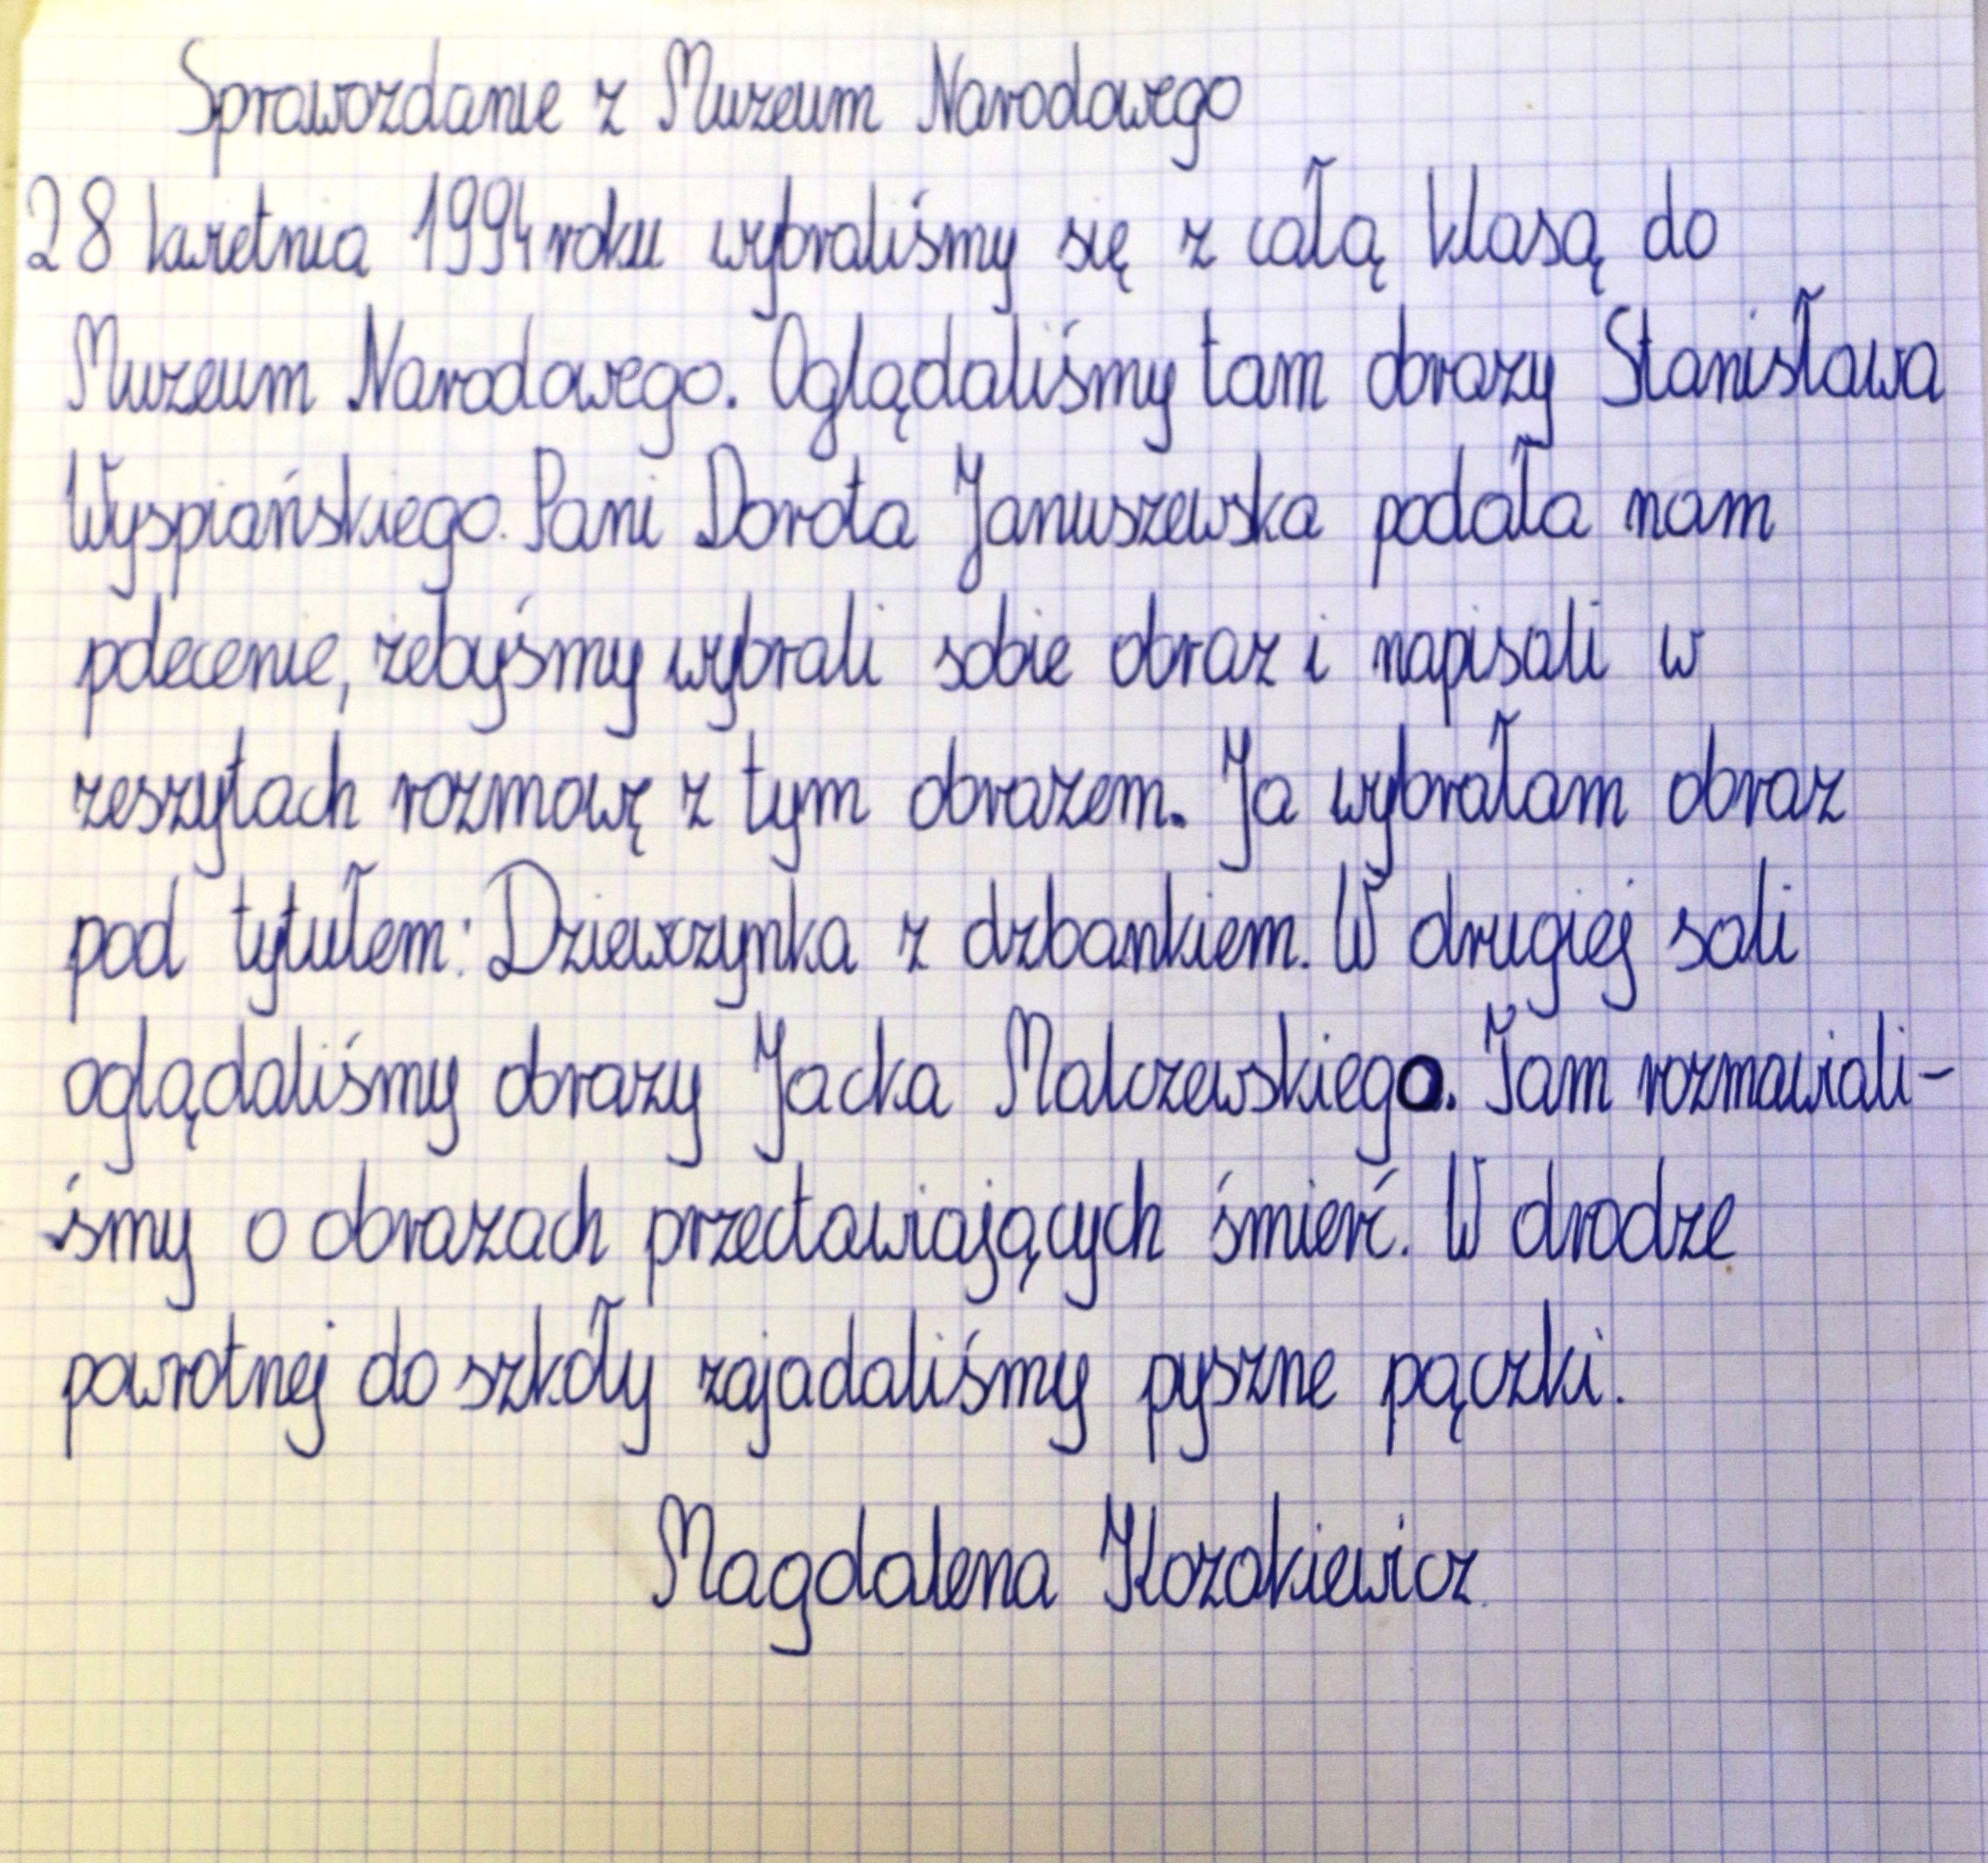 Sprawozdanie z Muzeum Narodowego
28 kwietnia 1994 roku wybraliśmy się z całą klasą do
Muzeum Narodowego. Oglądaliśmy tam obrazy Stanisława
Wyspiańskiego. Pani Dorota Januszewska podała nam
polecenie, żebyśmy wybrali sobie obraz i napisali w
zeszytach rozmowę z tym obrazem. Ja wybrałam obraz
pod tytułem: Dziewczynka z dzbankiem. W drugiej sali
oglądaliśmy obrazy Jacka Malczewskiego. Tam rozmawiali-
śmy o obrazach przedtawiających śmierć. W drodze
powrotnej do szkoły zajadaliśmy pyszne pączki.
Magdalena Kozakiewicz